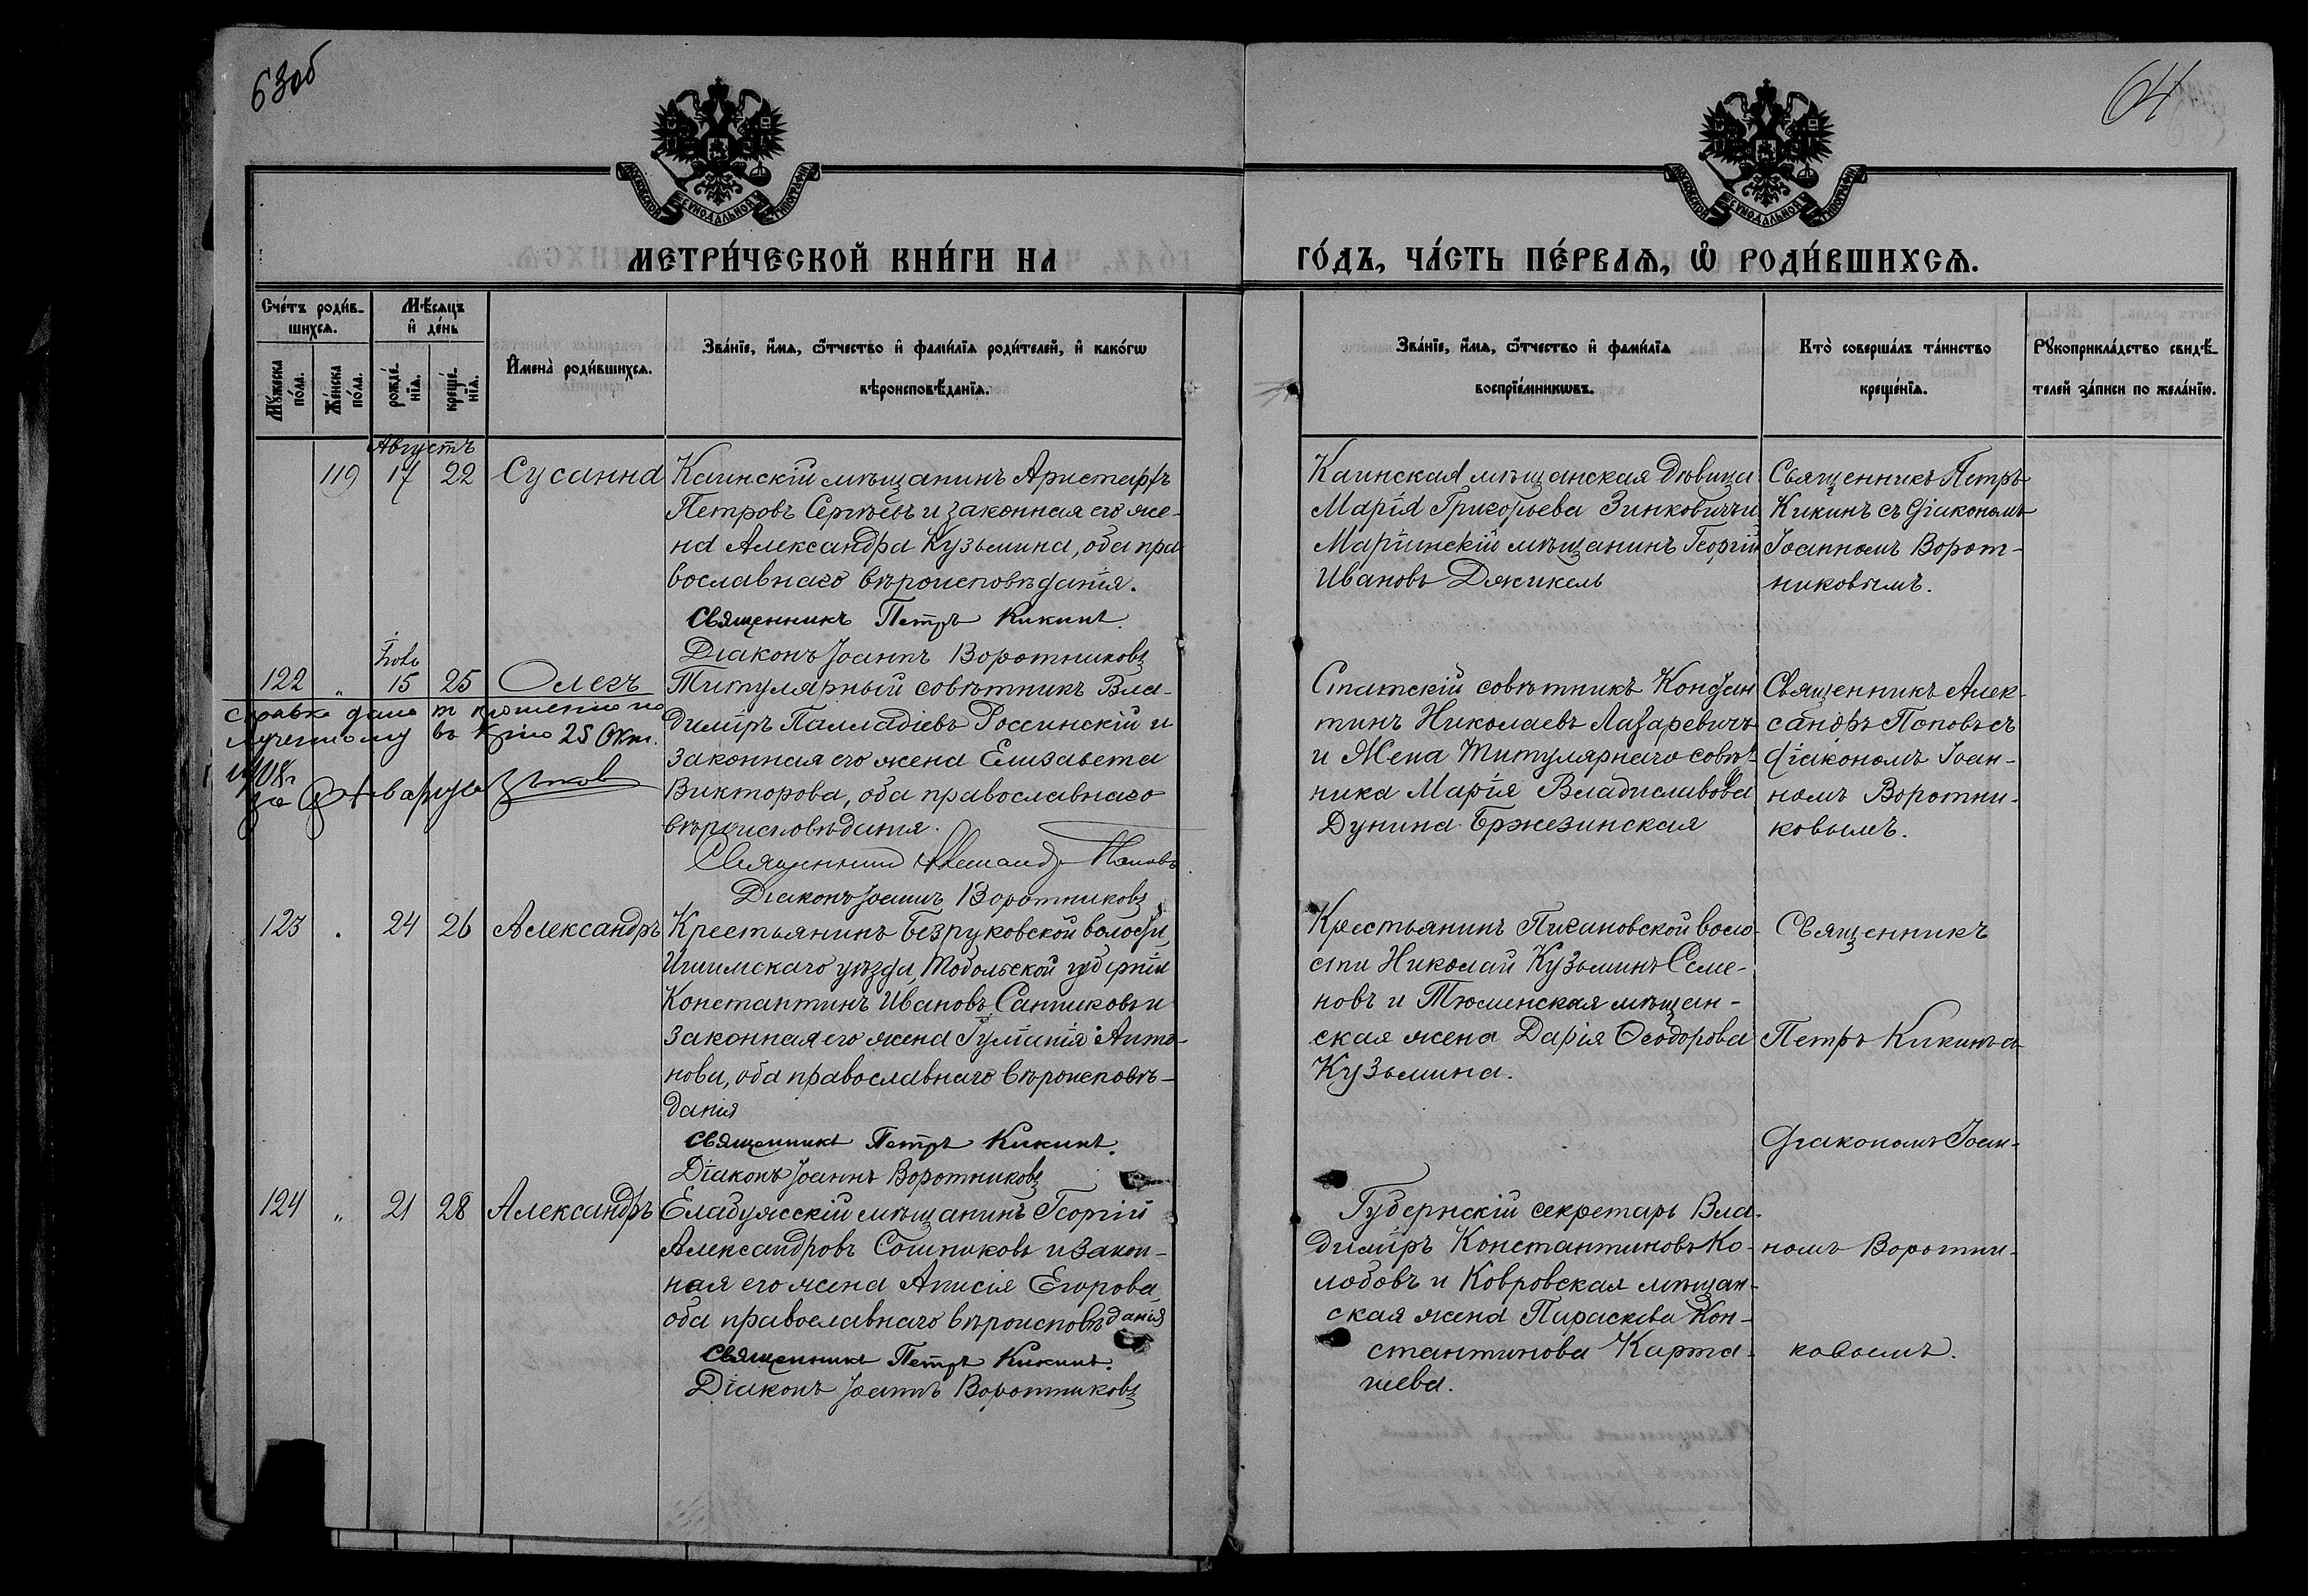 63об
64
МОСКОВСКОЙ СѴНОДАЛЬНОЙ ТИПОГРАФІИ
МОСКОВСКОЙ СѴНОДАЛЬНОЙ ТИПОГРАФІИ
МЕТРИ́ЧЕСКОЙ КНИ́ГИ НА
ГО́ДЪ, ЧА́СТЬ ПЕ́РВАѦ, Ѡ҆ РОДИ́ВШИХСѦ.
Сче́тъ роди́в-
шихсѧ.
Мꙋ́жеска
по́ла.
Же́нска
по́ла.
Мѣ́сѧцъ
и҆ де́нь
рожде́-
нїѧ.
креще́-
нїѧ.
И҆мена̀ роди́вшихсѧ.
Зва́нїе, и҆́мѧ, ѻ҆́тчество и҆ фамѝлїѧ роди́телей, и҆ како́гѡ
вѣроисповѣ́данїѧ.
Зва́нїе, и҆́мѧ, ѻ҆́тчество и҆ фамѝлїѧ
воспрїе́мникѡвъ.
Кто̀ соверша́лъ та́инство
креще́нїѧ.
Рꙋкоприкла́дство свидѣ́-
телей за́писи по жела́нїю.
Августъ
119 17 22 Сусанна
Каинскій мѣщанинъ Аристархъ
Петровъ Сергѣевъ и законная его же-
на Александра Кузьмина, оба пра
вославнаго вѣроисповѣданія.
Священникъ Петръ Кикинъ.
Діаконъ Іоаннъ Воротниковъ
Каинская мѣщанская дѣвица
Марія Григорьева Зинковичъ и
Маріинскій мѣщанинъ Георгій
Ивановъ Джикель
Священникъ Петръ
Кикинъ съ діакономъ
Іоанномъ Ворот-
никовымъ.
122 „ 15 25 Олегъ
справка дана
25 Окт.
1908г
Титулярный совѣтникъ Вла-
диміръ Палладіевъ Россинскій и
законная его жена Елизавета
Викторова, оба православнаго
вѣроисповѣданія.
Священникъ Александръ Поповъ
Діаконъ Іоаннъ Воротниковъ
Статскій совѣтникъ Констан
тинъ Николаевъ Лазаревичъ
и Жена Титулярнаго совѣт-
ника Марія Владиславова
Дунина-Бржезинская
Священникъ Алек-
сандръ Поповъ съ
діакономъ Іоан-
номъ Воротни-
ковымъ.
123 „ 24 26 Александръ
Крестьянинъ Безруковской волости,
Ишимскаго уѣзда, Тобольской губерніи
Константинъ Ивановъ Санниковъ и
законная его жена Іуліанія Анто-
нова, оба православнаго вѣроисповѣ-
данія
Священникъ Петръ Кикинъ.
Діаконъ Іоаннъ Воротниковъ
Крестьянинъ Пичановской воло-
сти Николай Кузьминъ Семе-
новъ и Тюменская мѣщан-
ская жена Дарія Ѳеодорова
Кузьмина.
Священникъ
Петръ Кикинъ съ
діакономъ Іоан-
124 „ 21 28 Александръ
Елабужскій мѣщанинъ Георгій
Александровъ Сошниковъ и закон-
ная его жена Анисія Егорова,
оба православнаго вѣроисповѣданія
Священникъ Петръ Кикинъ.
Діаконъ Іоаннъ Воротниковъ
Губернскій секретарь Вла-
диміръ Константиновъ Ко-
лобовъ и Ковровская мѣщан-
ская жена Параскева Кон-
стантинова Карта-
шева.
номъ Воротни-
ковымъ.